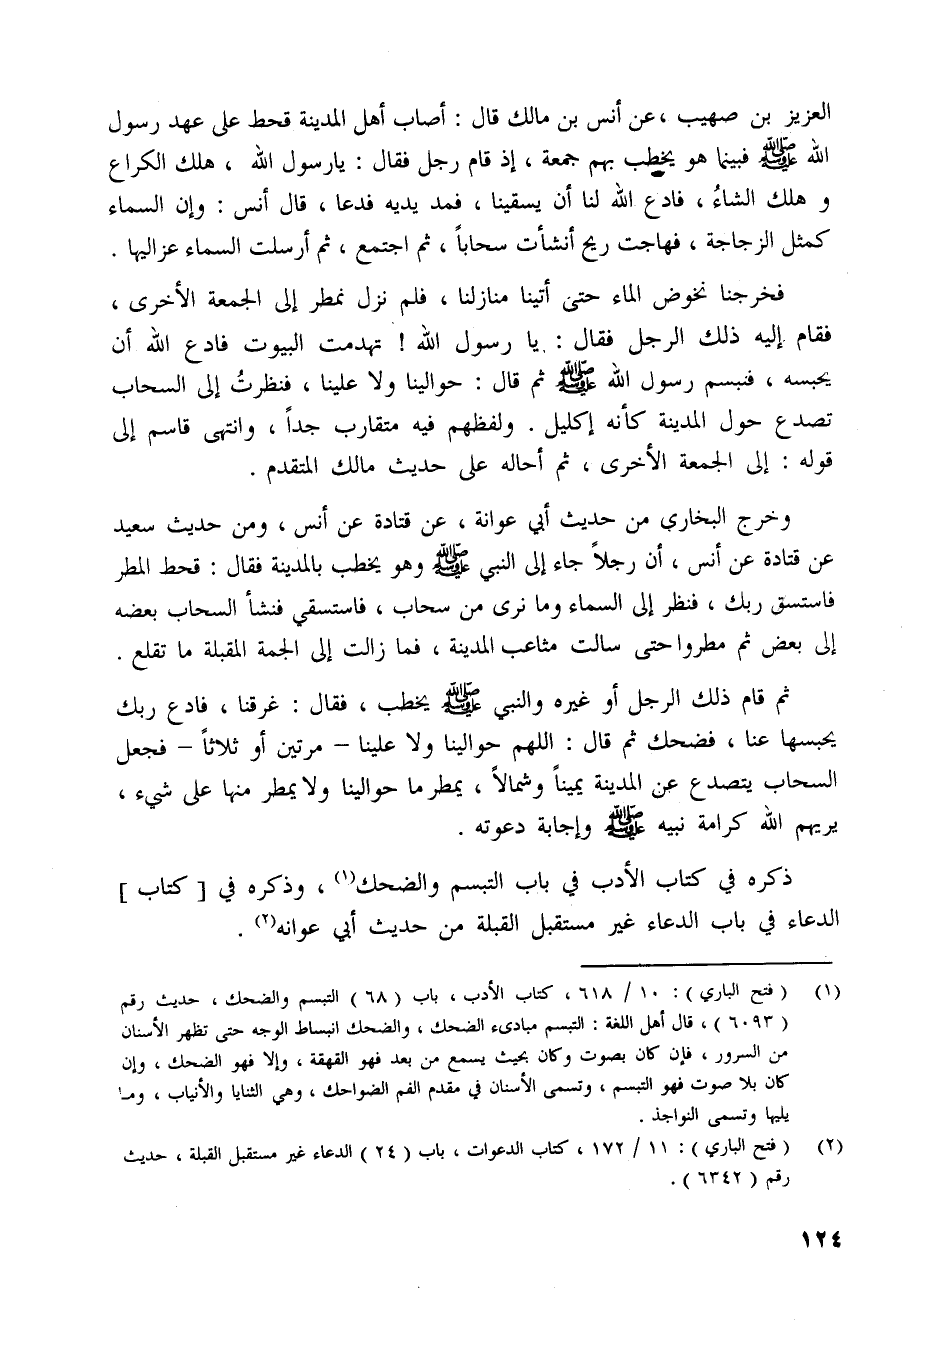 العزيز بن صهيب ، عن أنس بن مالك قال : أصاب أهل المدينة قحط على عهد رسول
الله ﷺ فبينما هو يخطب بهم جمعة ، إذ قام رجل فقال : يارسول الله ، هلك الكراع
و هلك الشاءُ ، فادع الله لنا أن يسقينا ، فمد يديه فدعا ، قال أنس : وإن السماء
كمثل الزجاجة ، فهاجت ريح أنشأت سحاباً ، ثم اجتمع ، ثم أرسلت السماء عزاليها .
فخرجنا نخوض الماء حتى أتينا منازلنا ، فلم نزل نمطر إلى الجمعة الأخرى ،
فقام إليه ذلك الرجل فقال : يا رسول الله ! تهدمت البيوت فادع الله أن
يحبسه ، فتبسم رسول الله ﷺ ثم قال : حوالينا ولا علينا ، فنظرتُ إلى السحاب
تصدع حول المدينة كأنه إكليل . ولفظهم فيه متقارب جداً ، وانتهى قاسم إلى
قوله : إلى الجمعة الأخرى ، ثم أحاله على حديث مالك المتقدم .
وخرج البخاري من حديث أبي عوانة ، عن قتادة عن أنس ، ومن حديث سعيد
عن قتادة عن أنس ، أن رجلاً جاء إلى النبي ﷺ وهو يخطب بالمدينة فقال : قحط المطر
فاستسق ربك ، فنظر إلى السماء وما نرى من سحاب ، فاستسقي فنشأ السحاب بعضه
إلى بعض ثم مطروا حتى سالت مثاعب المدينة ، فما زالت إلى الجمة المقبلة ما تقلع .
ثم قام ذلك الرجل أو غيره والنبي ﷺ يخطب ، فقال : غرقنا ، فادع ربك
يحبسها عنا ، فضحك ثم قال : اللهم حوالينا ولا علينا – مرتين أو ثلاثاً – فجعل
السحاب يتصدع عن المدينة يميناً وشمالاً ، يمطر ما حوالينا ولا يمطر منها على شيء ،
يريهم الله كرامة نبيه ﷺ وإجابة دعوته .
ذكره في كتاب الأدب في باب التبسم والضحك(١) ، وذكره في [ كتاب ]
الدعاء في باب الدعاء غير مستقبل القبلة من حديث أبي عوانه(٢) .
(١) ( فتح الباري ) : ١٠ / ٦١٨ ، كتاب الأدب ، باب ( ٦٨ ) التبسم والضحك ، حديث رقم
( ٦٠٩٣ ) ، قال أهل اللغة : التبسم مبادىء الضحك ، والضحك انبساط الوجه حتى تظهر الأسنان
من السرور ، فإن كان بصوت وكان بحيث يسمع من بعد فهو القهقة ، وإلا فهو الضحك ، وإن
كان بلا صوت فهو التبسم ، وتسمى الأسنان في مقدم الفم الضواحك ، وهي الثنايا والأنياب ، وما
يليها وتسمى النواجذ .
(٢) ( فتح الباري ) : ١١ / ١٧٢ ، كتاب الدعوات ، باب ( ٢٤ ) الدعاء غير مستقبل القبلة ، حديث
رقم ( ٦٣٤٢ ) .
١٢٤